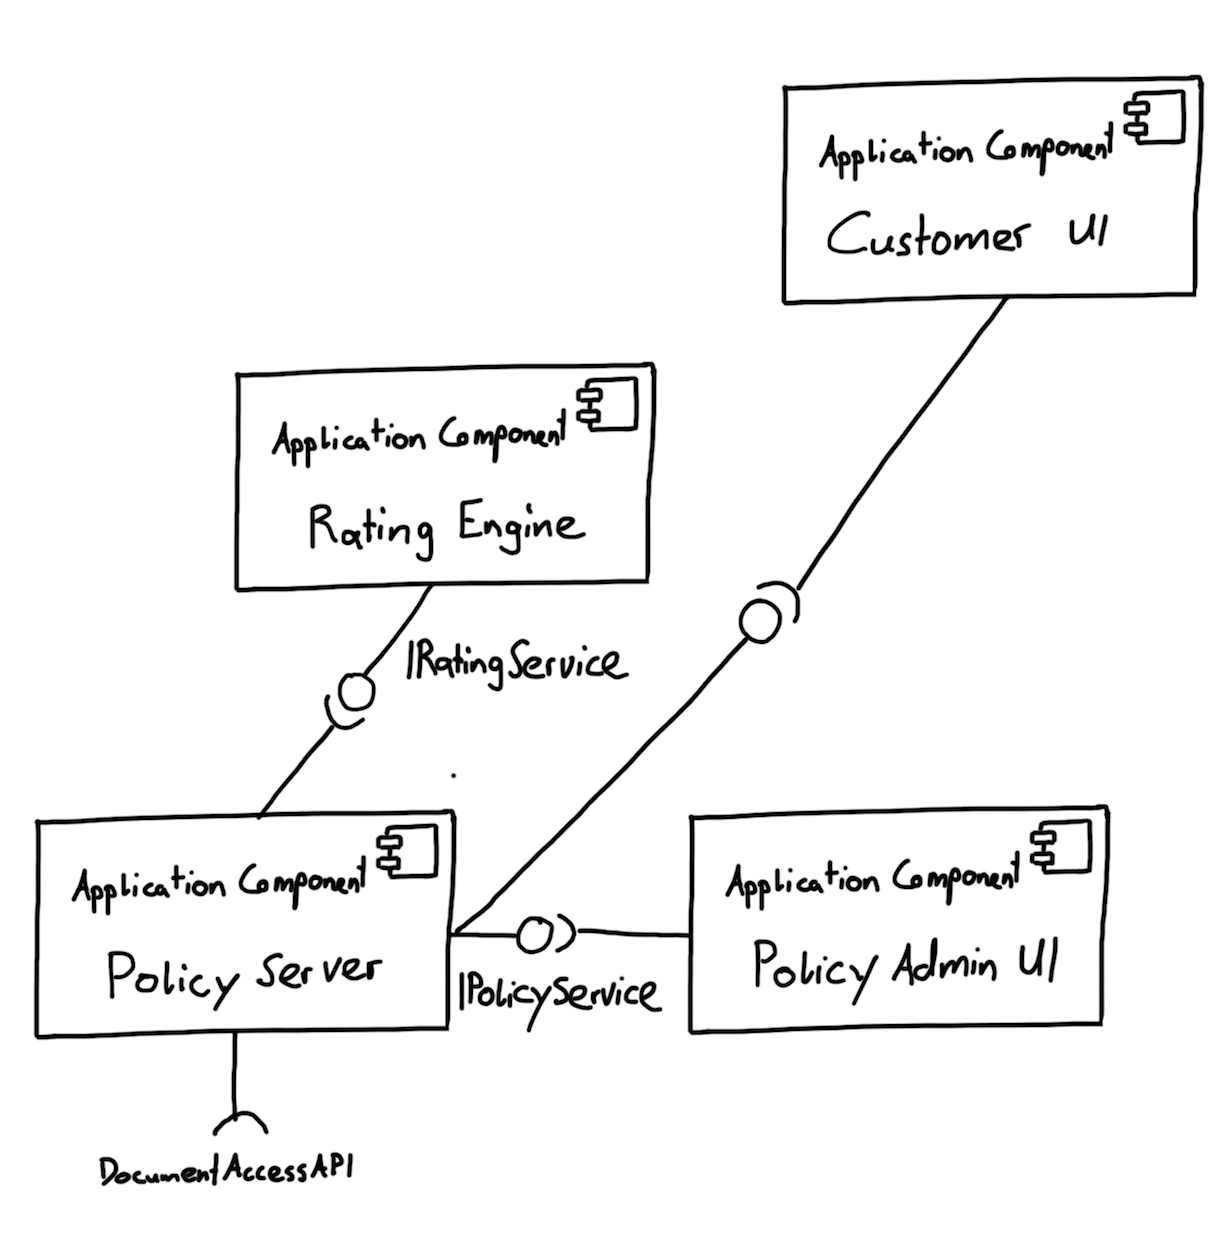 Application Component
Customer UI
Application Component
Rating Engine
IRatingService
Application Component
Policy Server
IPolicyService
Application Component
Policy Admin UI
DocumentAccessAPI